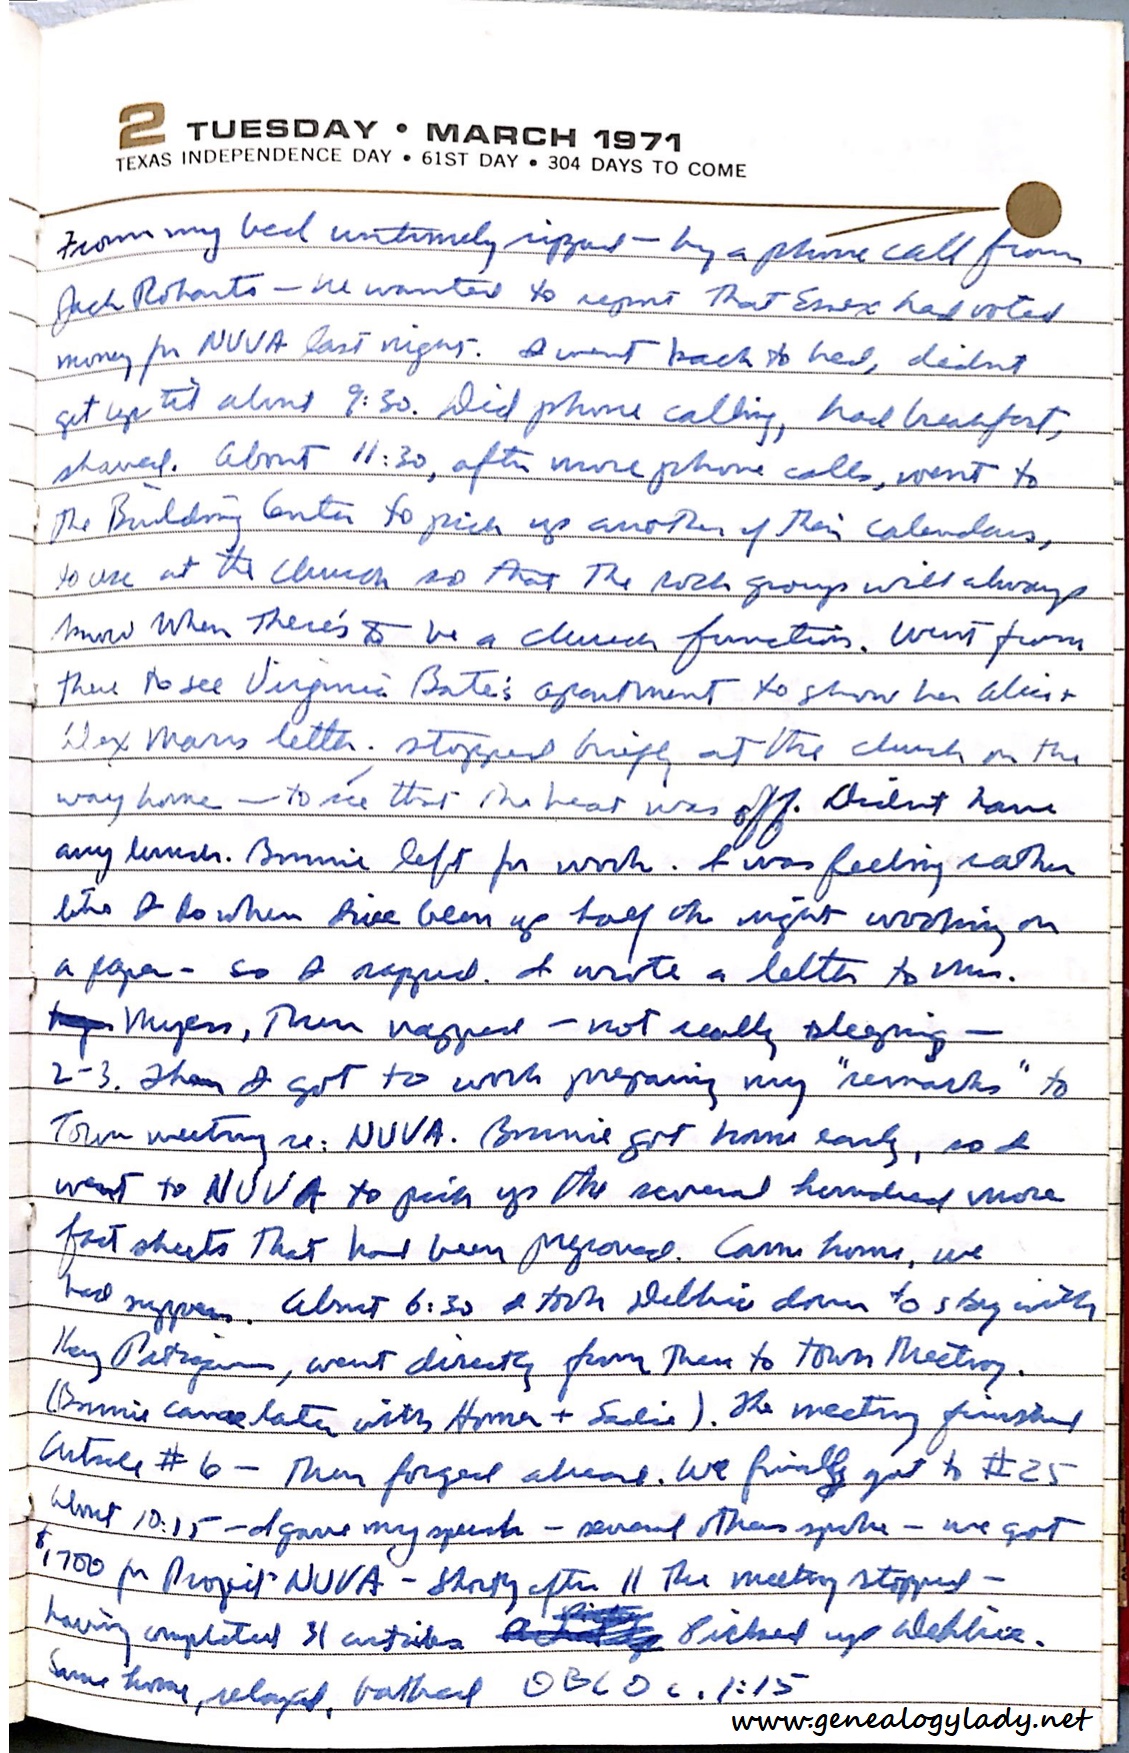 2 TUESDAY • MARCH 1971
TEXAS INDEPENDENCE DAY • 61ST DAY • 304 DAYS TO COME
From my bed untimely ripped — by a phone call from
Jack Roberts — he wanted to report that Essex had voted
money for NUVA last night. I went back to bed, didn't
get up til about 9:30. Did phone calling, had breakfast,
shaved. About 11:30, after more phone calls, went to
the Building Center to pick up another of their calendars,
to use at the church so that the rock groups will always
know when there's to be a church function. Went from
there to see Virginia Bate's apartment to show her
letter. Stopped briefly at the church on the
way home — to see that the heat was off. Didn't have
any lunch. Bonnie left for work. I was feeling rather
like I do when I've been up half the night working on
a paper — so I napped. I wrote a letter to Mrs.
Myers, then napped — not really sleeping —
2-3. Then I got to work preparing my "remarks" to
Town meeting re: NUVA. Bonnie got home early, so I
went to NUVA to pick up the several hundred more
fact sheets that had been prepared. Came home, we
had supper. About 6:30 I took Debbie down to stay with
Kay, went directly from there to Town Meeting.
(Bonnie came later with Homer + Sadie). The meeting finished
Article # 6 — then forged ahead. We finally got to #25
about 10:15 — I gave my speech — several others spoke — we got
$1700 for Project NUVA — Shortly after 11 the meeting stopped —
having completed 31 articles Picked up Debbie.
Came home, relaxed, bathed 1:15
www.genealogylady.net